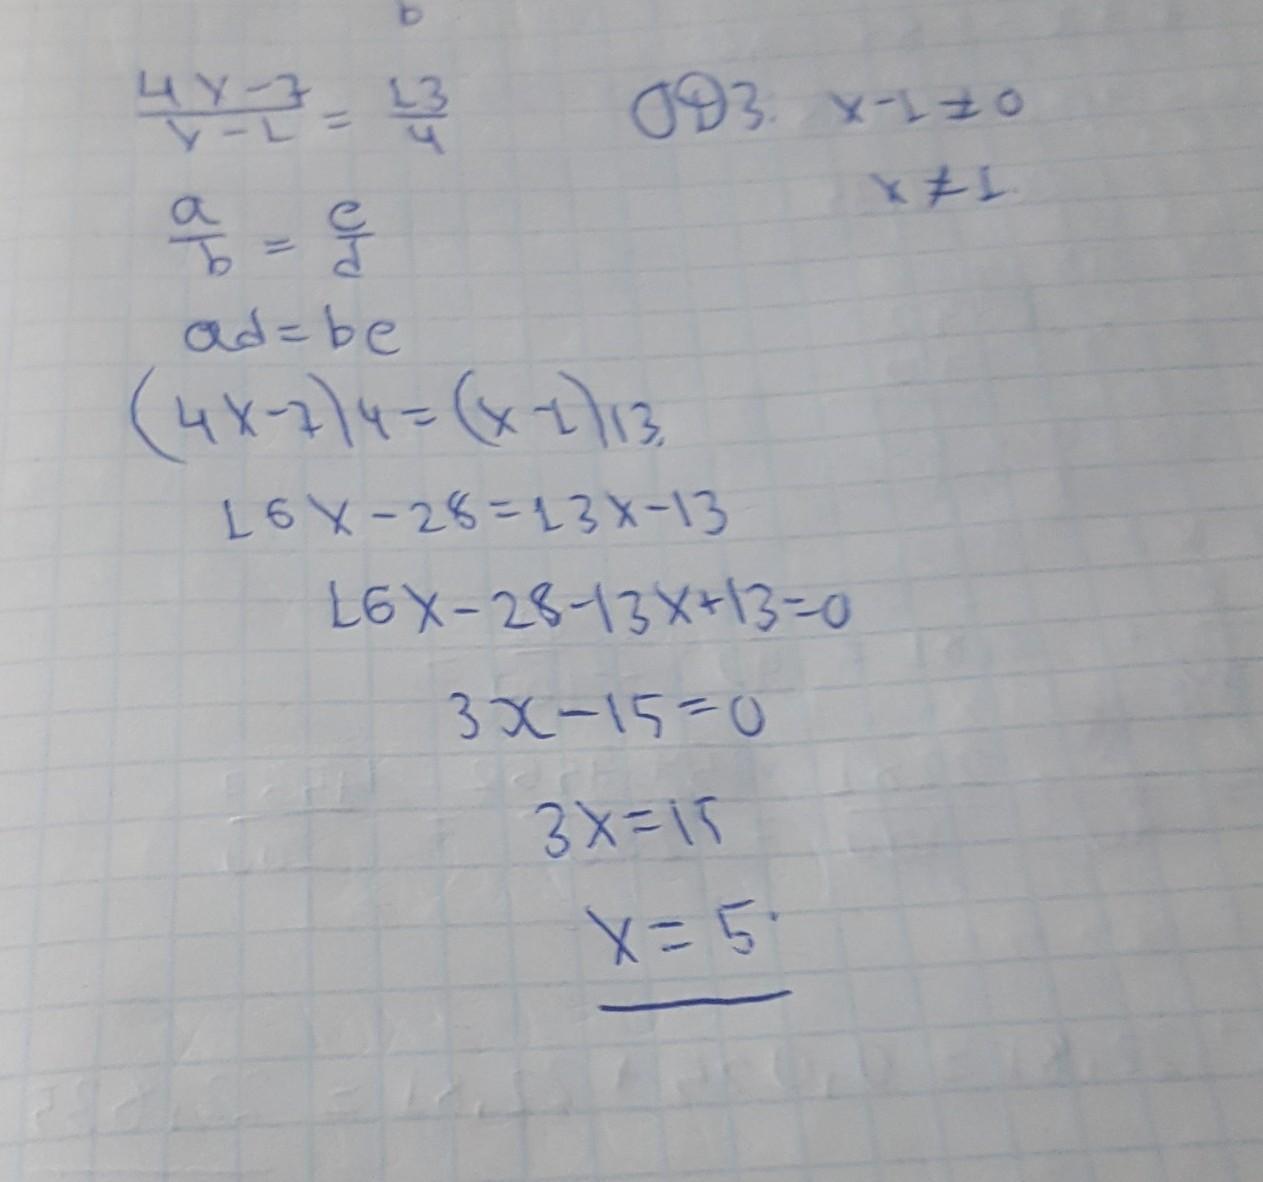 b
4x-7/x-1 = 13/4 ОДЗ. x-1≠0
x≠1
a/b = c/d
ad=bc
(4x-7)4=(x-1)13
16x-28=13x-13
16x-28-13x+13=0
3x-15=0
3x=15
x=5